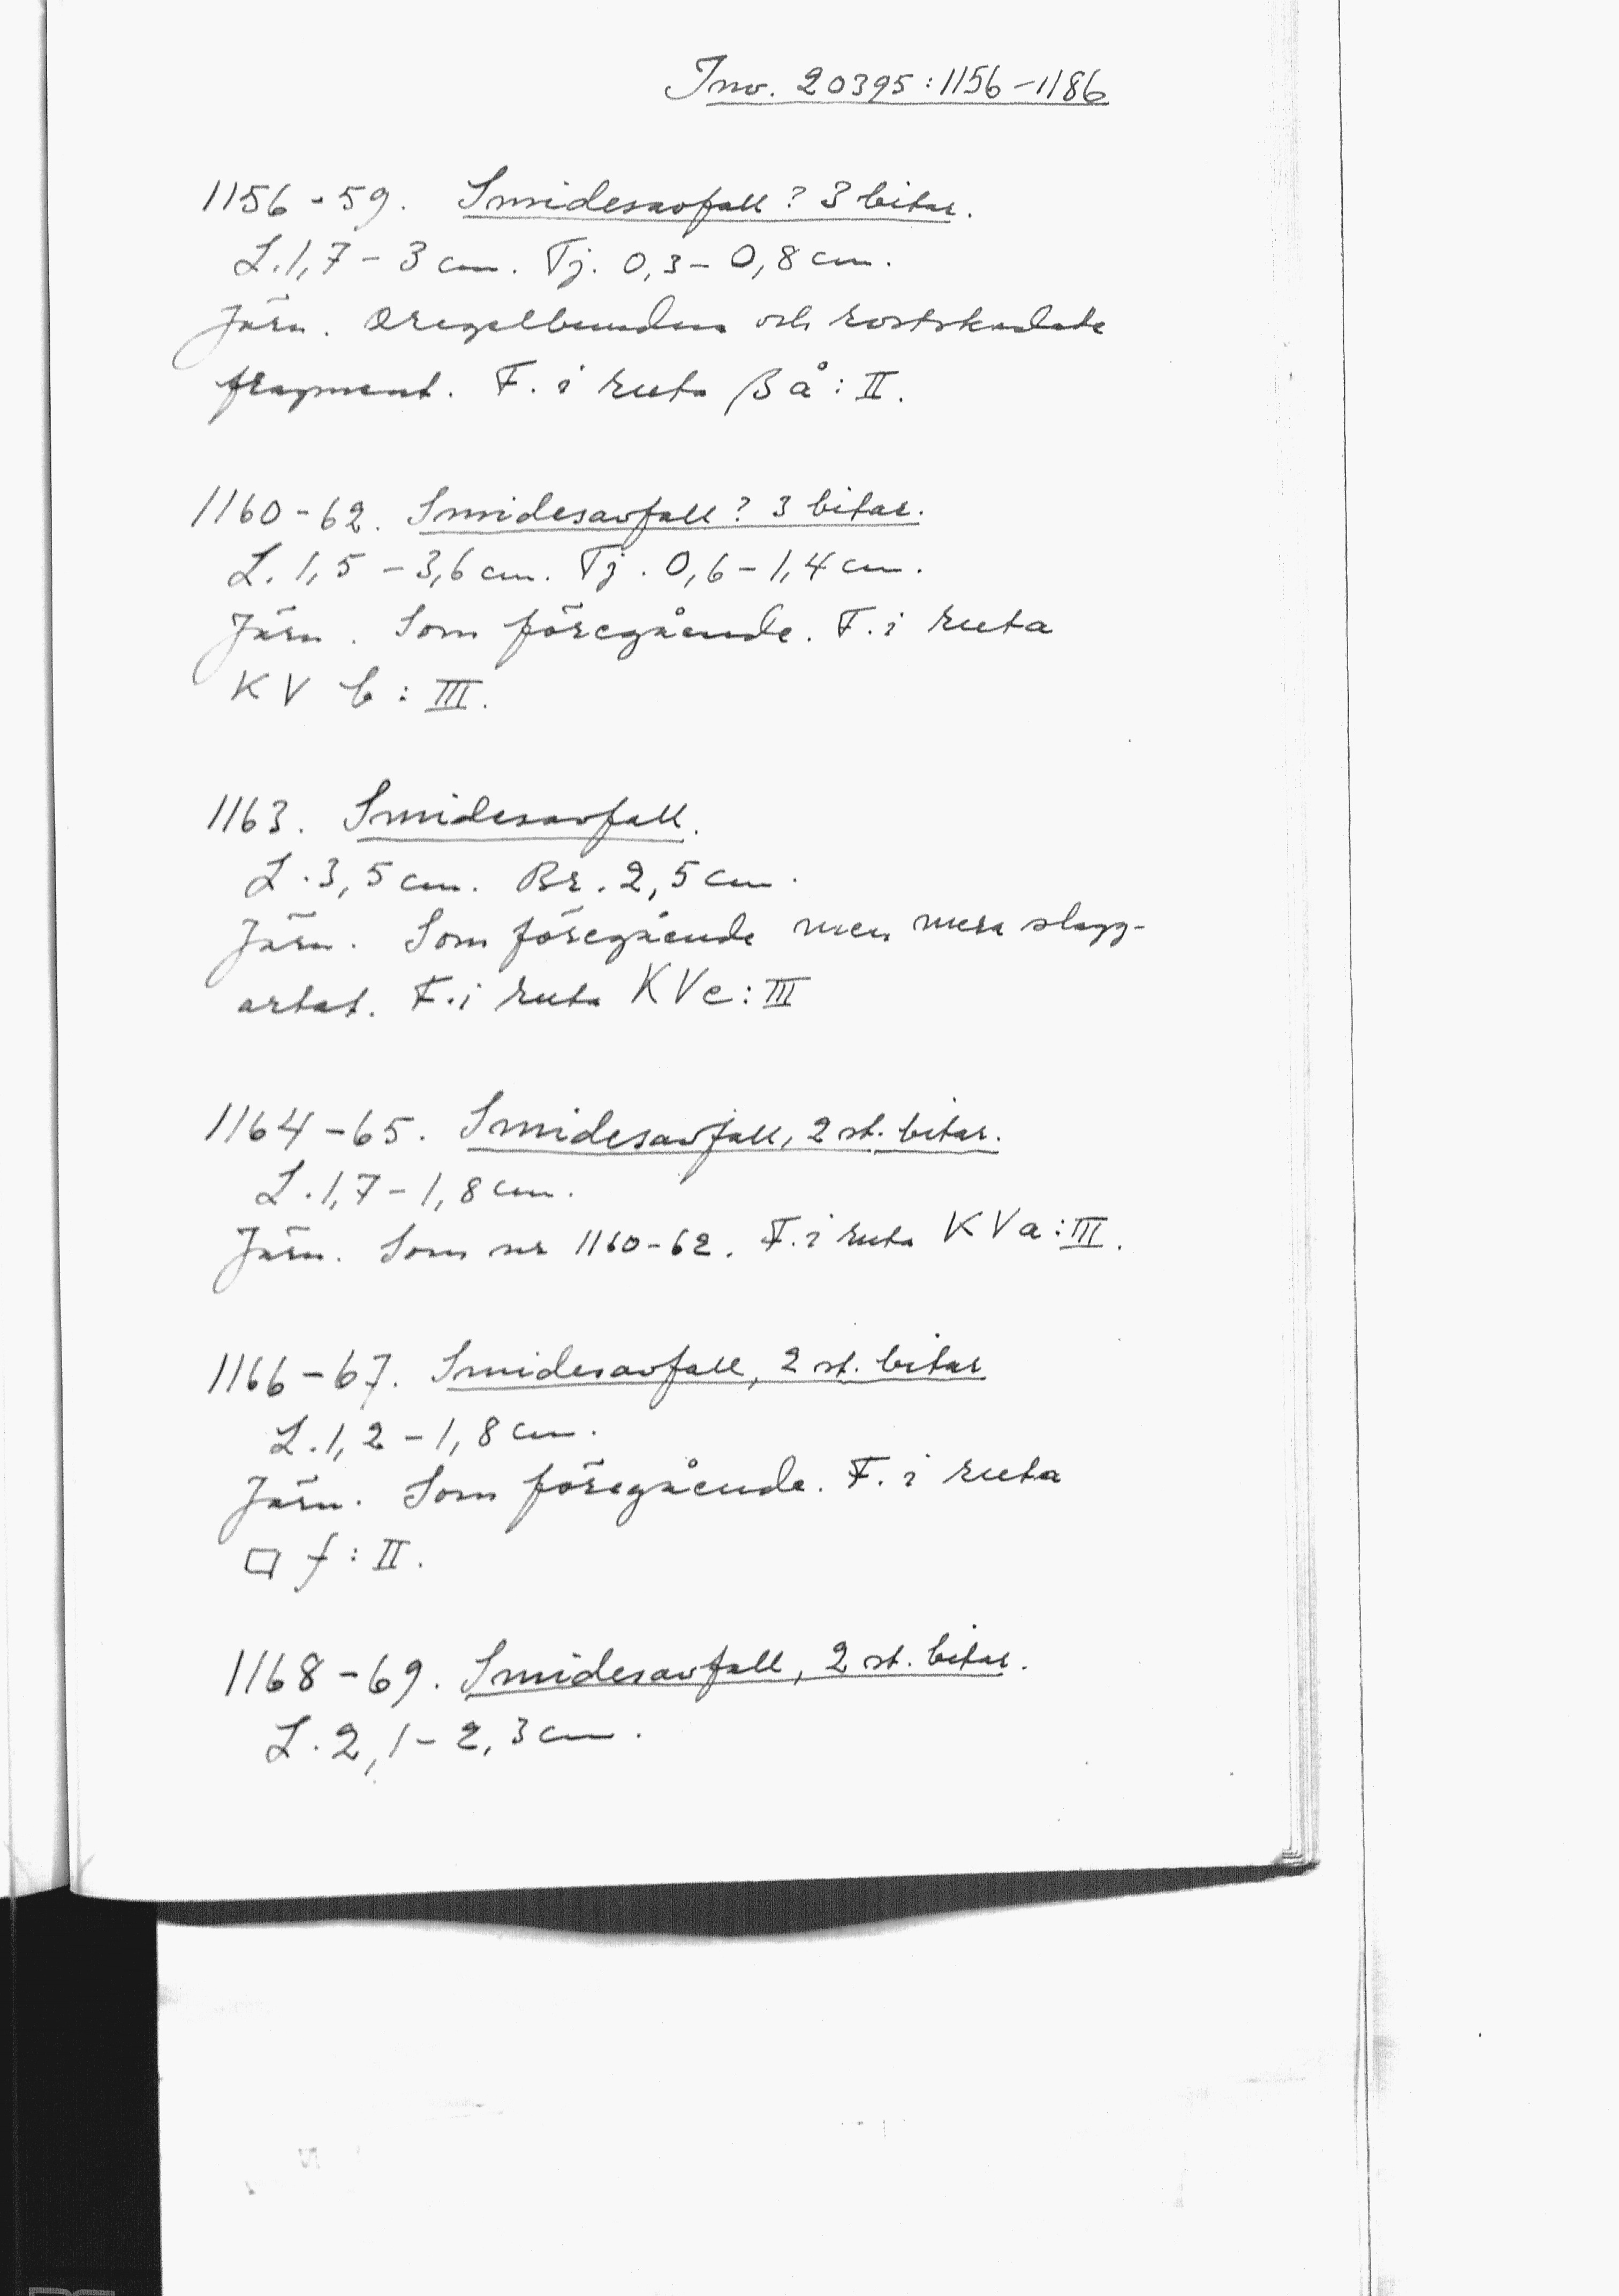 Inv. 20395:1156-1186
1156-59. Smidesavfall? 3 bitar.
L. 1,7-3 cm. Tj. 0,3-0,8 cm.
Järn. Oregelbundna och rostskadade
fragment. F. i ruta β å: II.
1160-62. Smidesavfall? 3 bitar.
L. 1,5-3,6 cm. Tj. 0,6-1,4 cm.
Järn. Som föregående. F. i ruta
KV b: III.
1163. Smidesavfall.
L. 3,5 cm. Br. 2,5 cm.
Järn. Som föregående men mera slagg-
artat. F. i ruta KVc: III
1164-65. Smidesavfall, 2 st. bitar.
L. 1,7-1,8 cm.
Järn. Som nr 1160-62. F. i ruta KVa: III.
1166-67. Smidesavfall, 2 st. bitar
L. 1,2-1,8 cm.
Järn. Som föregående. F. i ruta
□ f: II.
1168-69. Smidesavfall, 2 st. bitar.
L. 2,1-2,3 cm.